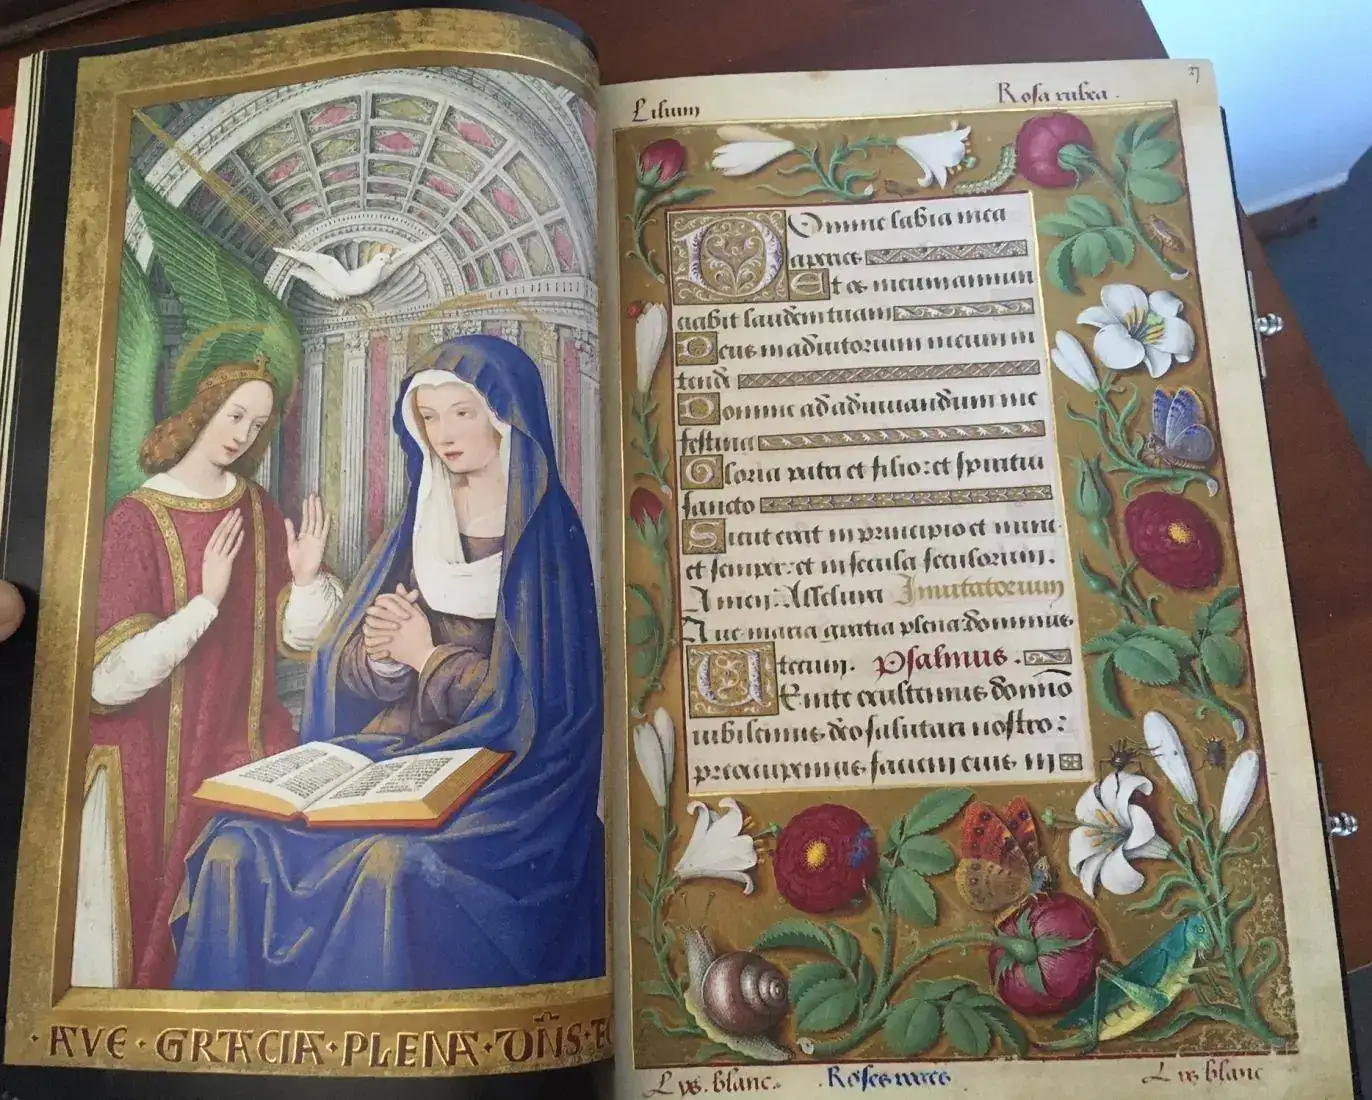 ·AVE·GRACIA·PLENA·DÑS·
27
Lilium
Rosa rubea.
Domine labia mea
aperies
Et os meum annun
ciabit laudem tuam
Deus in adiutorium meum in
tende
Domine ad adiuuandum me
festina
Gloria patri et filio: et spiritui
sancto
Sicut erat in principio et nunc
et semper: et in secula seculorum.
Amen. Alleluya Inuitatorium
Aue maria gratia plena: dominus
tecum. Psalmus.
Uenite exultemus domino
iubilemus deo salutari nostro:
preocupemus faciem eius in
Lys. blanc.
.Roses
Lys blanc